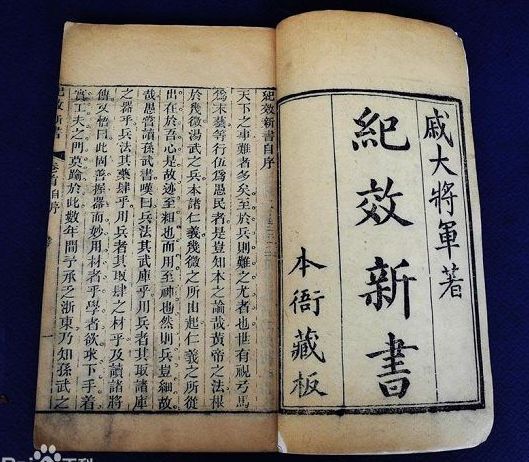 戚大將軍著
紀效新書
本衙藏板
紀效新書自序
天下之事難者多矣至於兵則難之尤者也世有視弓馬
爲末藝等行伍爲愚民者是豈知本之論哉黃帝之法根
於幾微湯武之兵本諸仁義幾微之所由起仁義之所從
出在於吾心是故迹至粗也而用至神也然則兵豈細故
哉愚嘗讀孫武書嘆曰兵法其武庫乎用兵者其取諸庫
之器乎兵法其藥肆乎用兵者其取肆之材乎及讀諸將
傳又悟曰此固善握器而妙用材者乎學者欲求下手着
實工夫之門莫踰於此數年間予承乏浙東乃知孫武之
紀效新書
自序
一
百科